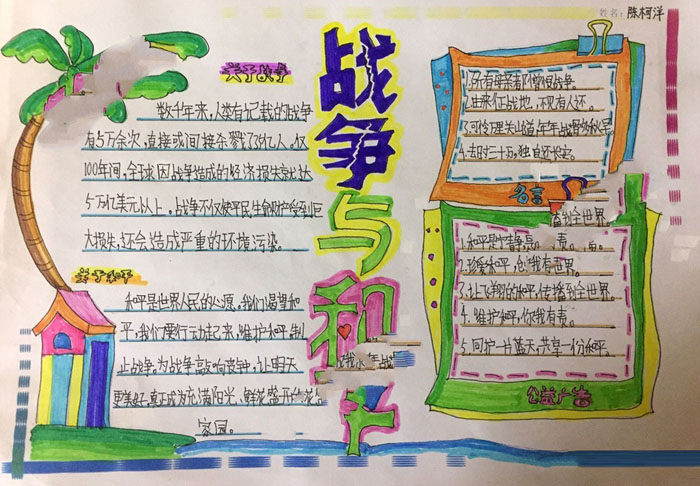 姓名：陈柯洋
战争与和平
关于战争
数千年来，人类有记载的战争
有5万余次，直接或间接杀戮了36亿人。仅
100年间，全球因战争造成的经济损失就达
5万亿美元以上。战争不仅使平民生命财产受到巨
大损失，还会造成严重的环境污染。
关于和平
和平是世界人民的心愿。我们渴望和
平，我们要行动起来，维护和平，制
止战争。为战争敲响丧钟，让明天
更美好，真正成为充满阳光，鲜花盛开的
家园。
1.所有母亲都憎恨战争。
2.由来征战地，不见有人还。
3.可怜万里关山道，年年战骨多秋草。
4.去时三十万，独自还长安。
名言
播到全世界
1.和平是宁静
2.珍爱和平，世界。
3.让飞翔的和平，传播到全世界。
4.维护和平，你我有责。
5.同护一片蓝天，共享一份和平。
公益广告